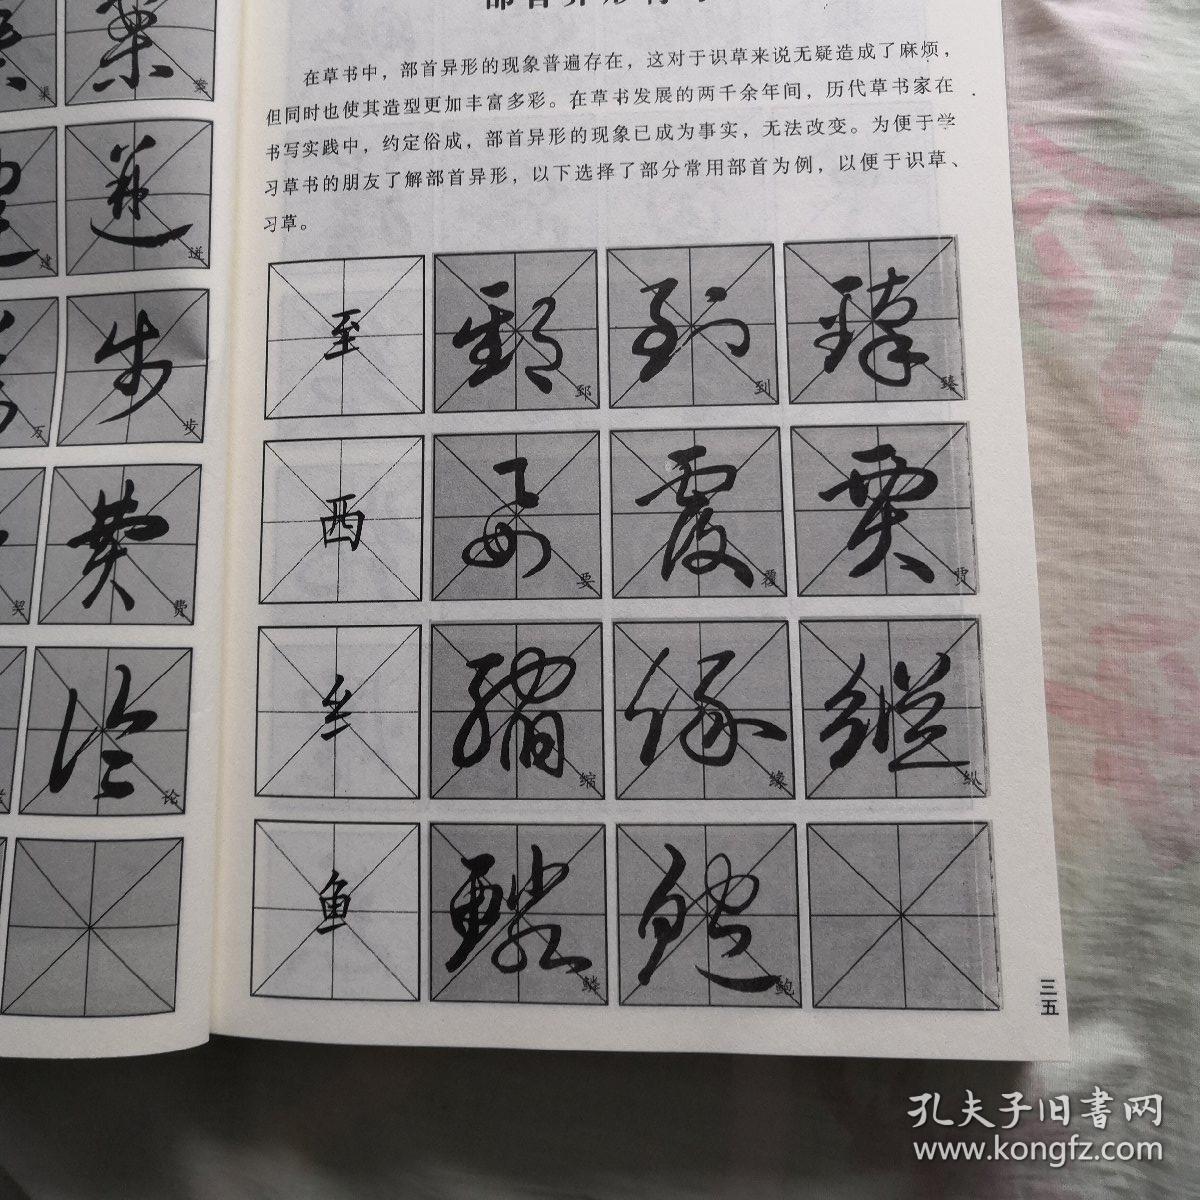 在草书中，部首异形的现象普遍存在，这对于识草来说无疑造成了麻烦，
但同时也使其造型更加丰富多彩。在草书发展的两千余年间，历代草书家在
书写实践中，约定俗成，部首异形的现象已成为事实，无法改变。为便于学
习草书的朋友了解部首异形，以下选择了部分常用部首为例，以便于识草、
习草。
至 郅 到 臻
西 要 覆 贾
纟 缩 缘 纵
鱼 鳞 鲍
渠 案
建 迸
万 步
契 费
论
三五
孔夫子旧書网
www.kongfz.com